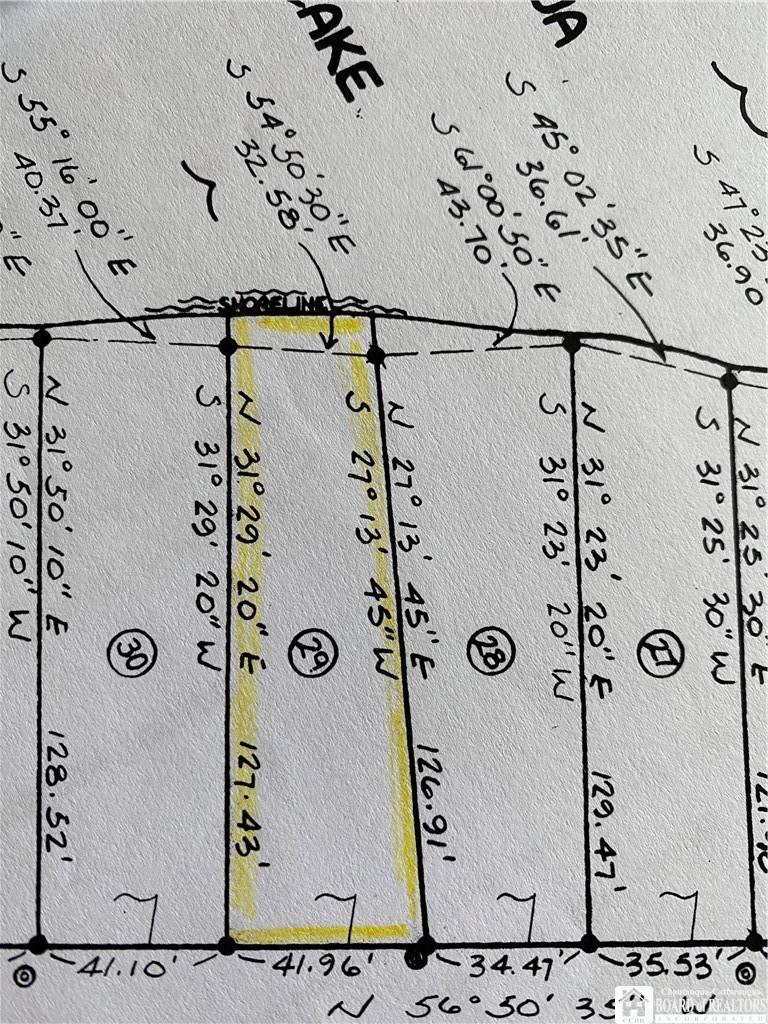 LAKE
S 55° 16' 00" E
40.37'
S 54° 50' 30" E
32.58'
S 61° 00' 50" E
43.70'
S 45° 02' 35" E
36.61'
36.90
SHORELINE
N 31° 50' 10" E 128.52'
S 31° 50' 10" W
30
N 31° 29' 20" E 127.43'
S 31° 29' 20" W
29
N 27° 13' 45" E 126.91'
S 27° 13' 45" W
28
N 31° 23' 20" E 129.47'
S 31° 23' 20" W
27
N 31° 25' 30" E
S 31° 25' 30" W
41.10' 41.96' 34.47' 35.53'
N 56° 50' 35" W
Chautauqua-Cattaraugus
BOARD of REALTORS
INCORPORATED